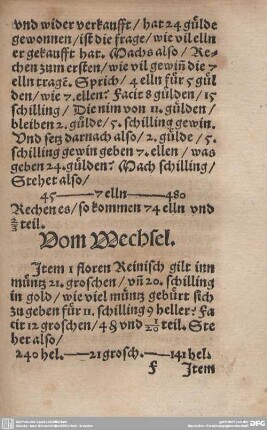 vnd wider verkaufft / hat 24 gülde
gewonnen / ist die frage / wie vil elln
er gekaufft hat. Machs also / Re-
chen zum ersten / wie vil gewiñ die 7
elln tragẽ. Sprich / 4 elln für 5 gül
den / wie 7. ellen? Facit 8 gülden / 15
schilling / Die nim von 11. gülden /
bleiben 2. gülde / 5. schilling gewin.
Vnd setz darnach also / 2. gülde / 5.
schilling gewin geben 7. ellen / was
geben 24. gülden? Mach schilling /
Stehet also /
45 — 7 elln — 480
Rechen es / so kommen 74 elln vnd
2/3 teil.
Vom Wechsel.
Item 1 floren Reinisch gilt inn
müntz 21. groschen / vñ 20. schilling
in gold / wie viel müntz gebürt sich
zu geben für 11. schilling 9 heller? Fa
cit 12 groschen / 4 ₰ vnd 1/20 teil. Ste
het also /
240 hel. — 21 grosch. — 141 hel.
F Item